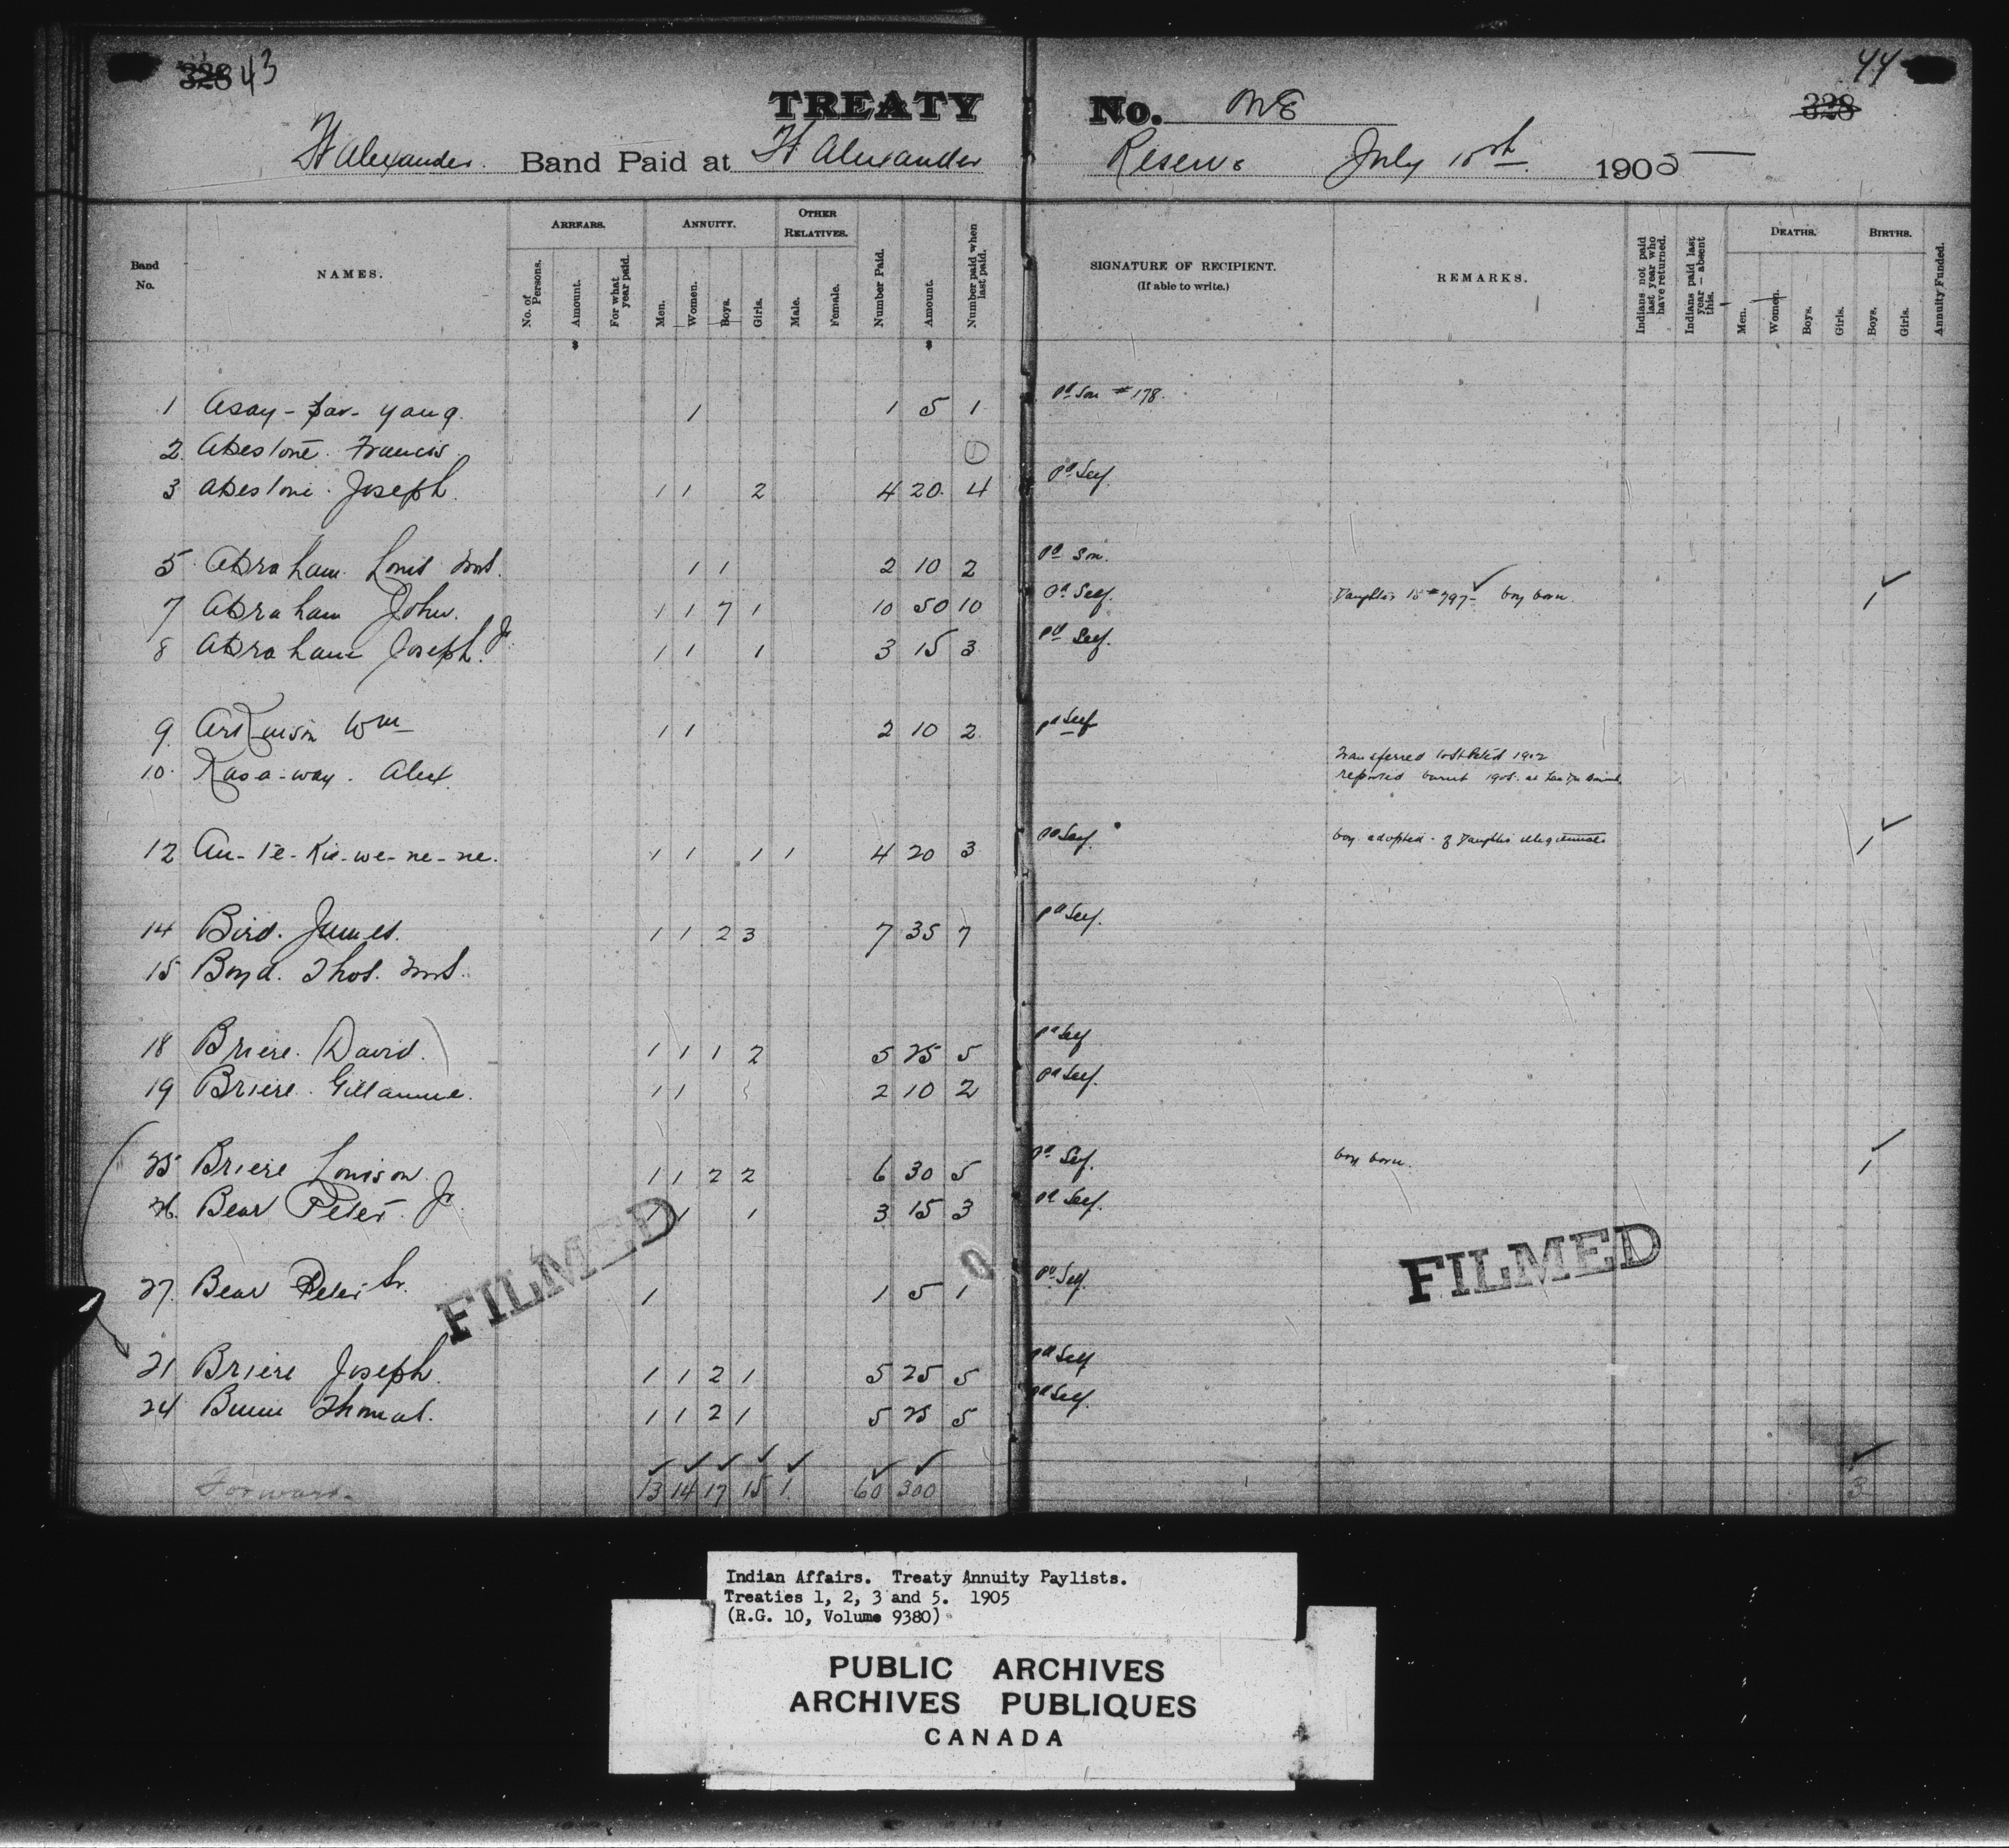 328 43
44
328
TREATY No. One
Ft Alexander. Band Paid at Ft Alexander Reserve July 15th. 1905
Band No.
NAMES.
ARREARS.
No. of Persons.
Amount.
For what year paid.
ANNUITY.
Men.
Women.
Boys.
Girls.
OTHER RELATIVES.
Male.
Female.
Number Paid.
Amount.
Number paid when last paid.
SIGNATURE OF RECIPIENT.
(If able to write.)
REMARKS.
Indians not paid last year who have returned.
Indians paid last year — absent this.
DEATHS.
Men.
Women.
Boys.
Girls.
BIRTHS.
Boys.
Girls.
Annuity Funded.
$ $
1 Asay-par-yang. 1 1 5 1 Pd Son # 178.
2 Francis 1
3 Joseph. 1 1 2 4 20 4 Pd Self.
5 Abraham Louis Mrs. 1 1 2 10 2 Pd Son.
7 Abraham John. 1 1 7 1 10 50 10 Pd Self. Daughter to # 797 boy born. 1
8 Abraham Joseph. Jr 1 1 1 3 15 3 Pd Self.
9 Wm 1 1 2 10 2 Pd Self
10. Kas-a-way. Alex. Transferred to St Peters 1902
reported 1905. at
12 An-te-Kis-we-ne-ne. 1 1 1 1 4 20 3 Pd Self. boy adopted. of Daughter 1
14 Bird. James. 1 1 2 3 7 35 7 Pd Self.
15 Boyd. Thos. Mrs.
18 Briere. David. 1 1 1 2 5 25 5 Pd Self
19 Briere. Gillaume. 1 1 2 10 2 Pd Self.
25 Briere Louison. 1 1 2 2 6 30 5 Pd Self. boy born. 1
26. Bear Peter. Jr. 1 1 1 3 15 3 Pd Self.
27. Bear Peter Sr. 1 1 5 1 Pd Self.
21 Briere Joseph. 1 1 2 1 5 25 5 Pd Self
24 Thomas. 1 1 2 1 5 25 5 Pd Self.
Forward. 13 14 17 15 1 60 300 3
FILMED
FILMED
Indian Affairs. Treaty Annuity Paylists.
Treaties 1, 2, 3 and 5. 1905
(R.G. 10, Volume 9380)
PUBLIC ARCHIVES
ARCHIVES PUBLIQUES
CANADA